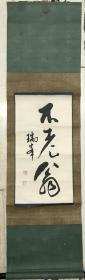 不老翁
瑞峯